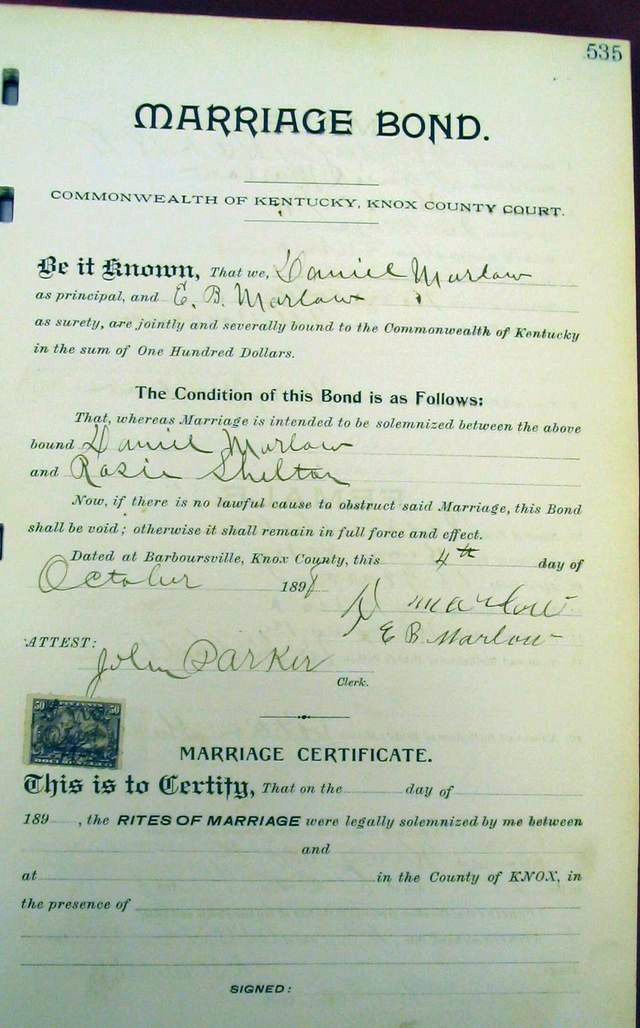 535
MARRIAGE BOND.
COMMONWEALTH OF KENTUCKY, KNOX COUNTY COURT.
Be it Known, That we, Daniel Marlow
as principal, and E. B. Marlow
as surety, are jointly and severally bound to the Commonwealth of Kentucky
in the sum of One Hundred Dollars.
The Condition of this Bond is as Follows:
That, whereas Marriage is intended to be solemnized between the above
bound Daniel Marlow
and Rosie Shelton
Now, if there is no lawful cause to obstruct said Marriage, this Bond
shall be void; otherwise it shall remain in full force and effect.
Dated at Barboursville, Knox County, this 4th day of
October 1898
D Marlow
E B. Marlow
ATTEST:
John Parker
Clerk.
50 50
MARRIAGE CERTIFICATE.
This is to Certify, That on the day of
189 , the RITES OF MARRIAGE were legally solemnized by me between
and
at in the County of KNOX, in
the presence of
SIGNED: